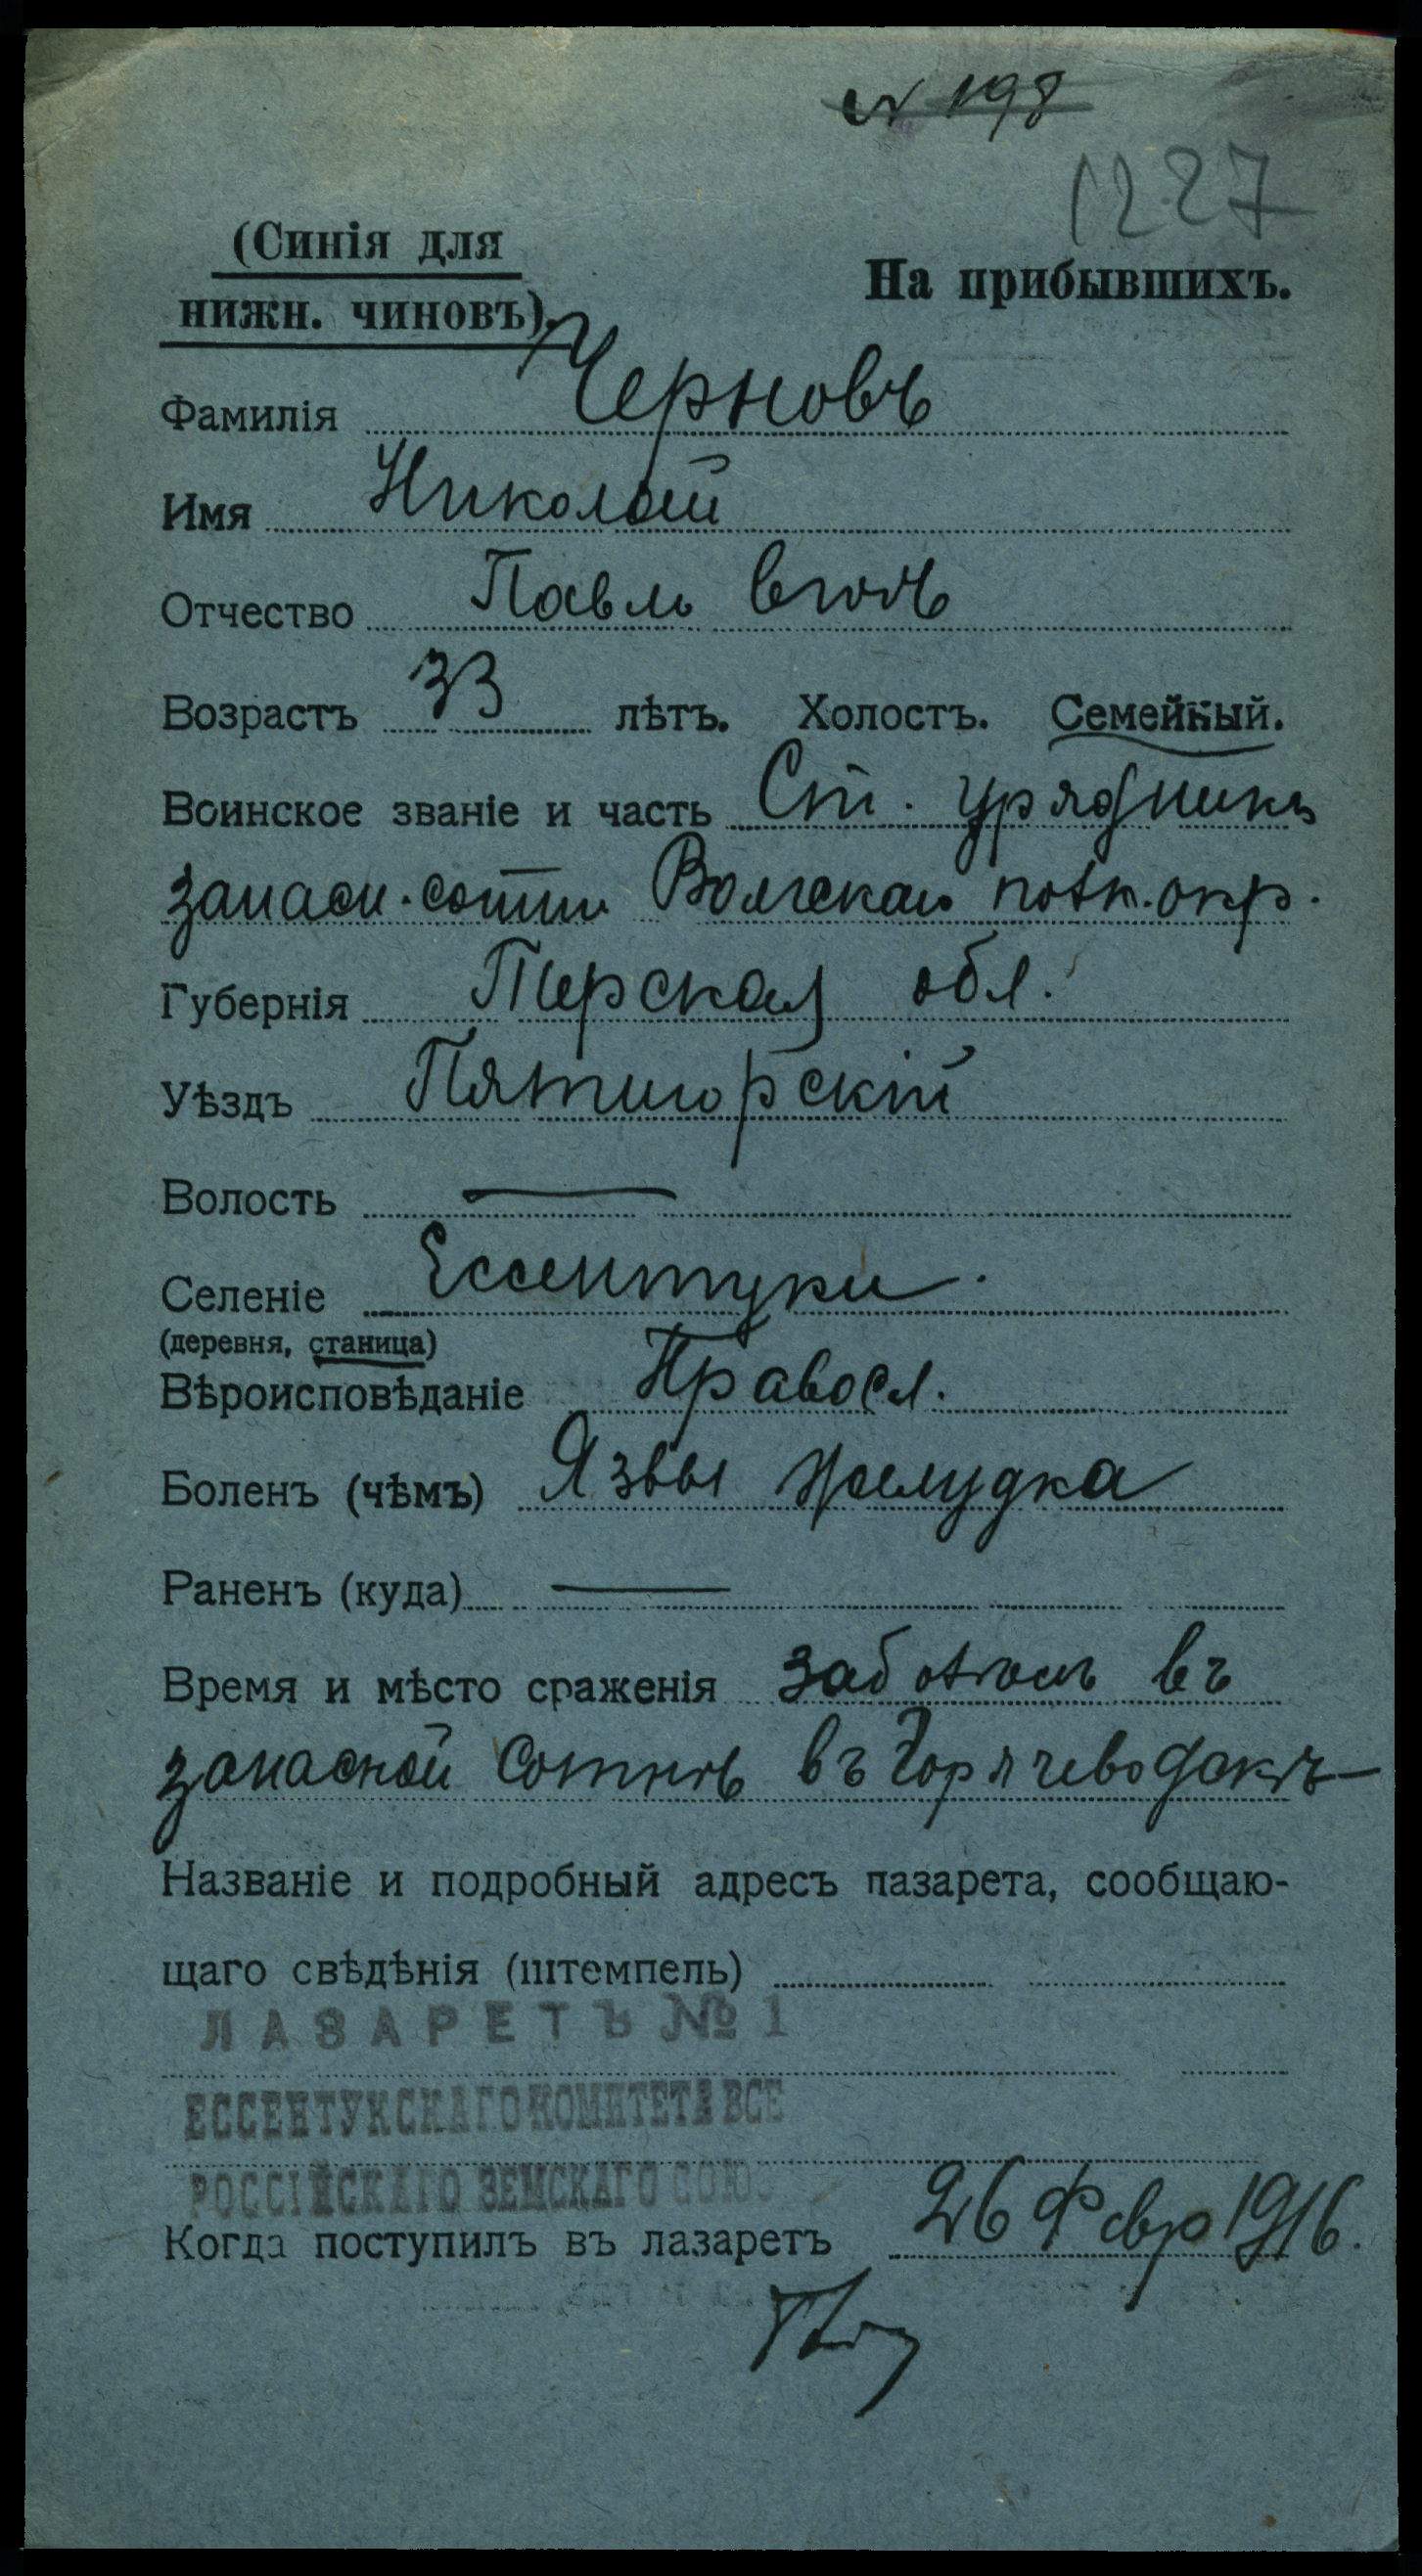 № 198
1227
(Синія для
нижн. чиновъ).
На прибывшихъ.
Фамилія Черновъ
Имя Николай
Отчество Павловичъ
Возрастъ 33 лѣтъ. Холостъ. Семейный.
Воинское званіе и часть Ст. урядникъ
запасн. сотни Волгскаго окр.
Губернія Терская обл.
Уѣздъ Пятигорскій
Волость —
Селеніе Ессентуки.
(деревня, станица)
Вѣроисповѣданіе Правосл.
Боленъ (чѣмъ) Язвы желудка
Раненъ (куда) —
Время и мѣсто сраженія въ
запасной сотнѣ въ
Названіе и подробный адресъ лазарета, сообщаю-
щаго свѣдѣнія (штемпель)
ЛАЗАРЕТЪ № 1
ЕССЕНТУКСКАГО КОМИТЕТА ВСЕ
РОССІЙСКАГО ЗЕМСКАГО СОЮ
Когда поступилъ въ лазаретъ 26 Февр 1916.